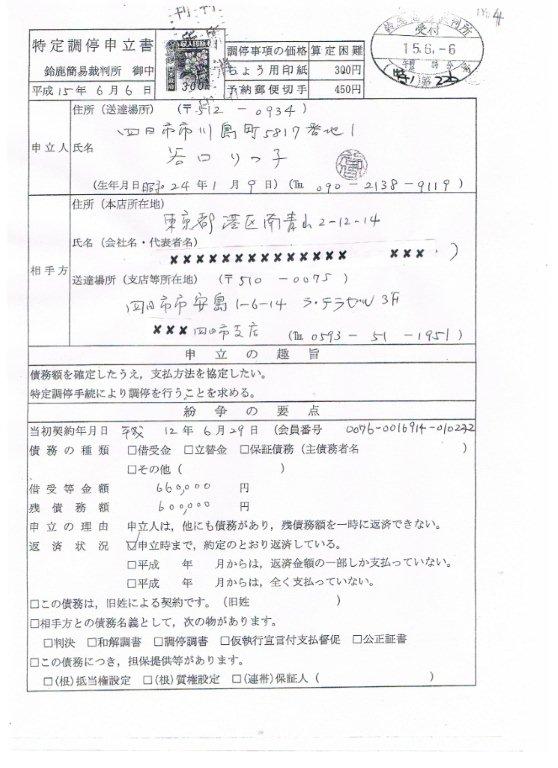 No. 4
特定調停申立書
鈴鹿簡易裁判所 御中
平成15年6月6日
300円
調停事項の価格 算定困難
ちょう用印紙 300円
予納郵便切手 450円
受付
15.6.-6
第220
申立人
住所(送達場所) (〒512-0934)
四日市市川島町5817番地1
氏名
谷口りつ子
(生年月日 昭和24年1月9日)(℡ 090-2138-9119)
相手方
住所(本店所在地)
東京都港区南青山2-12-14
氏名(会社名・代表者名)
××××××××××××××× ×××)
送達場所(支店等所在地) (〒510-0075)
四日市市安島1-6-14 ラ・テラセル3F
×××四日市支店 (℡ 0593-51-1951)
申立の趣旨
債務額を確定したうえ,支払方法を協定したい。
特定調停手続により調停を行うことを求める。
紛争の要点
当初契約年月日 平成12年6月29日(会員番号 0076-0016914-010232
債務の種類 □借受金 □立替金 □保証債務(主債務者名 )
□その他( )
借受等金額 660,000 円
残債務額 600,000 円
申立の理由 申立人は,他にも債務があり,残債務額を一時に返済できない。
返済状況 ☑申立時まで,約定のとおり返済している。
□平成 年 月からは,返済金額の一部しか支払っていない。
□平成 年 月からは,全く支払っていない。
□この債務は,旧姓による契約です。(旧姓 )
□相手方との債務名義として,次の物があります。
□判決 □和解調書 □調停調書 □仮執行宣言付支払督促 □公正証書
□この債務につき,担保提供等があります。
□(根)抵当権設定 □(根)質権設定 □(連帯)保証人( )